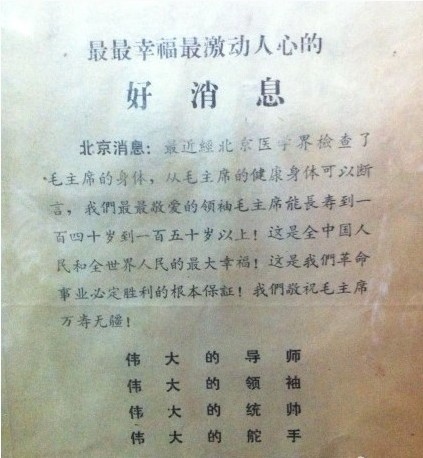 最最幸福最激动人心的
好消息
北京消息：最近經北京医学界檢查了
毛主席的身体，从毛主席的健康身体可以断
言，我們最最敬爱的领袖毛主席能長寿到一
百四十岁到一百五十岁以上！这是全中国人
民和全世界人民的最大幸福！这是我們革命
事业必定胜利的根本保証！我們敬祝毛主席
万寿无疆！
伟大的导师
伟大的领袖
伟大的统帅
伟大的舵手